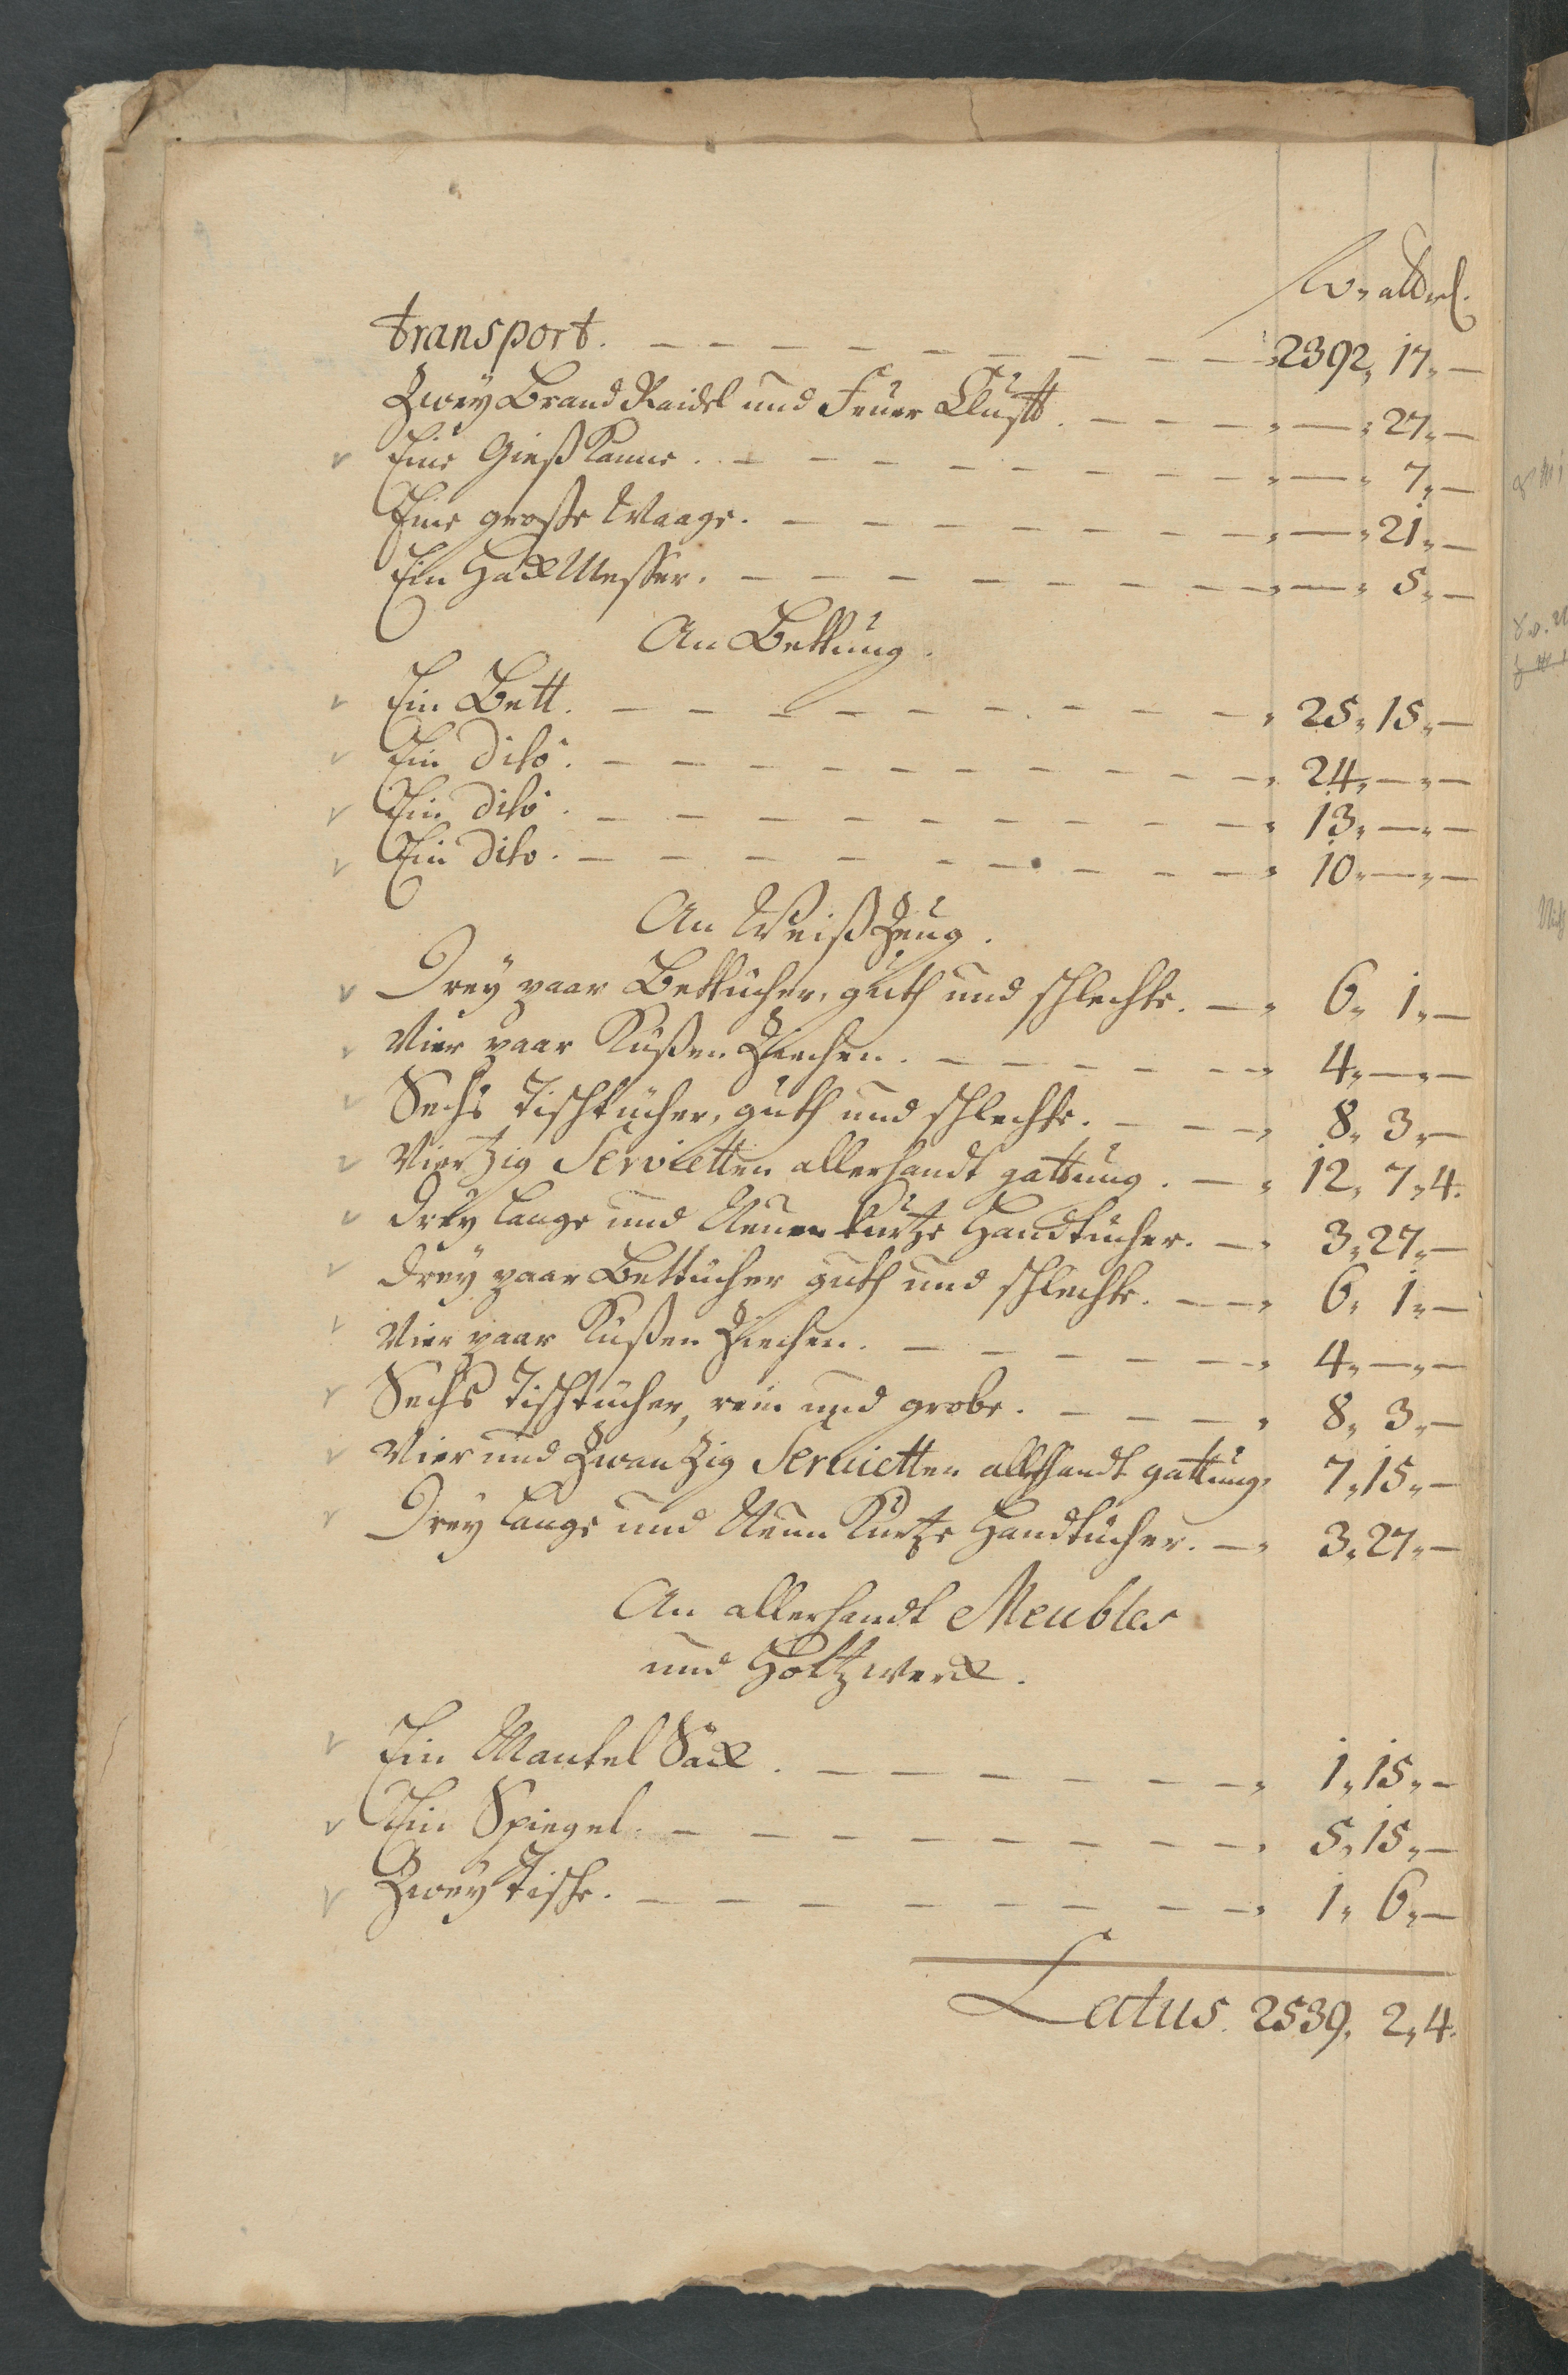 transport. — — — — — — — — 2392„ 17„ —
Zwey Brand Raidel und Feuer Klufft. — — — „ — „ 27„ —
Eine Gieß Kanne. — — — — — — — — „ — „ 7„ —
Eine große Waage. — — — — — — — „ — „ 21„ —
Ein Hack Messer. — — — — — — — „ — „ 5„ —
An Bettung.
Ein Bett. — — — — — — — — „ 25„ 15„ —
Ein dito. — — — — — — — — „ 24„ — „ —
Ein dito. — — — — — — — — „ 13„ — „ —
Ein dito. — — — — — — — — „ 10„ — „ —
An Weiß Zeug.
Drey paar Bettücher, guth und schlechte. — „ 6„ 1„ —
Vier paar Küßen Ziechen. — — — — — „ 4„ — „ —
Sechs Tischtücher, guth und schlechte. — — „ 8„ 3„ —
Viertzig Servietten allerhandt gattung. — „ 12„ 7„ 4.
Drey lange und Neun kurtze Handtücher. — „ 3„ 27„ —
Drey paar Bettücher guth und schlechte. — „ 6„ 1„ —
Vier paar Küßen Ziechen. — — — — — „ 4„ — „ —
Sechs Tischtücher, rein und grobe. — — — „ 8„ 3„ —
Vier und Zwanzig Servietten allerhandt gattung„ 7„ 15„ —
Drey lange und Neun Kurtze Handtücher. — „ 3„ 27„ —
An allerhandt Meubles
und Holtzwerck.
Ein Mantel Sack. — — — — — — „ 1„ 15„ —
Ein Spiegel. — — — — — — — — „ 5„ 15„ —
Zwey Tische. — — — — — — — — „ 1„ 6„ —
Latus. 2539„ 2„ 4.